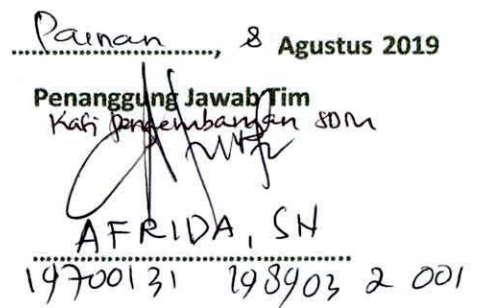 Painan, 8 Agustus 2019
Penanggung Jawab Tim
Kasi pengembangan SDM
AFRIDA, SH
19700131 198903 2 001